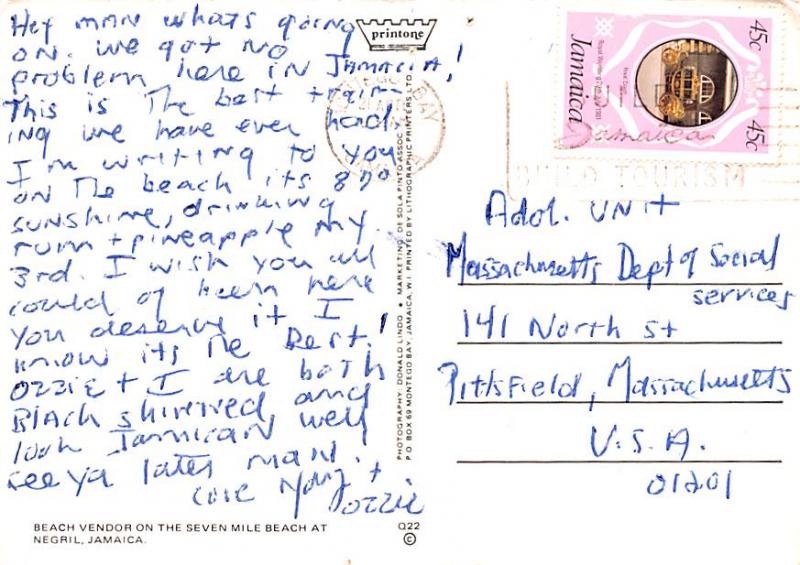 Hey man whats going
on. we got no
problem here in JAMAICA!
This is The best train-
ing we have ever had.
I'm writing to you
on The beach its 87°
sunshine, drinking
rum + pineapple my
3rd. I wish you all
could of been here
you deserve it I
know its The Best!
Ozzie + I are both
Black skinned, and
look Jamican well
see ya later man!
Love +
Ozzie
BEACH VENDOR ON THE SEVEN MILE BEACH AT
NEGRIL, JAMAICA.
Q22
©
printone
PHOTOGRAPHY: DONALD LINDO ★ MARKETING: DE SOLA PINTO ASSOC.
P.O. BOX 69 MONTEGO BAY, JAMAICA, W.I. PRINTED BY LITHOGRAPHIC PRINTERS LTD.
BAY
45c
45c
Jamaica
Royal Wedding 29th July 1981
Jamaica
BUILD TOURISM
Adol. UNIT
Massachusetts Dept of Social
services
141 North St
Pittsfield, Massachusetts
U.S.A.
01201